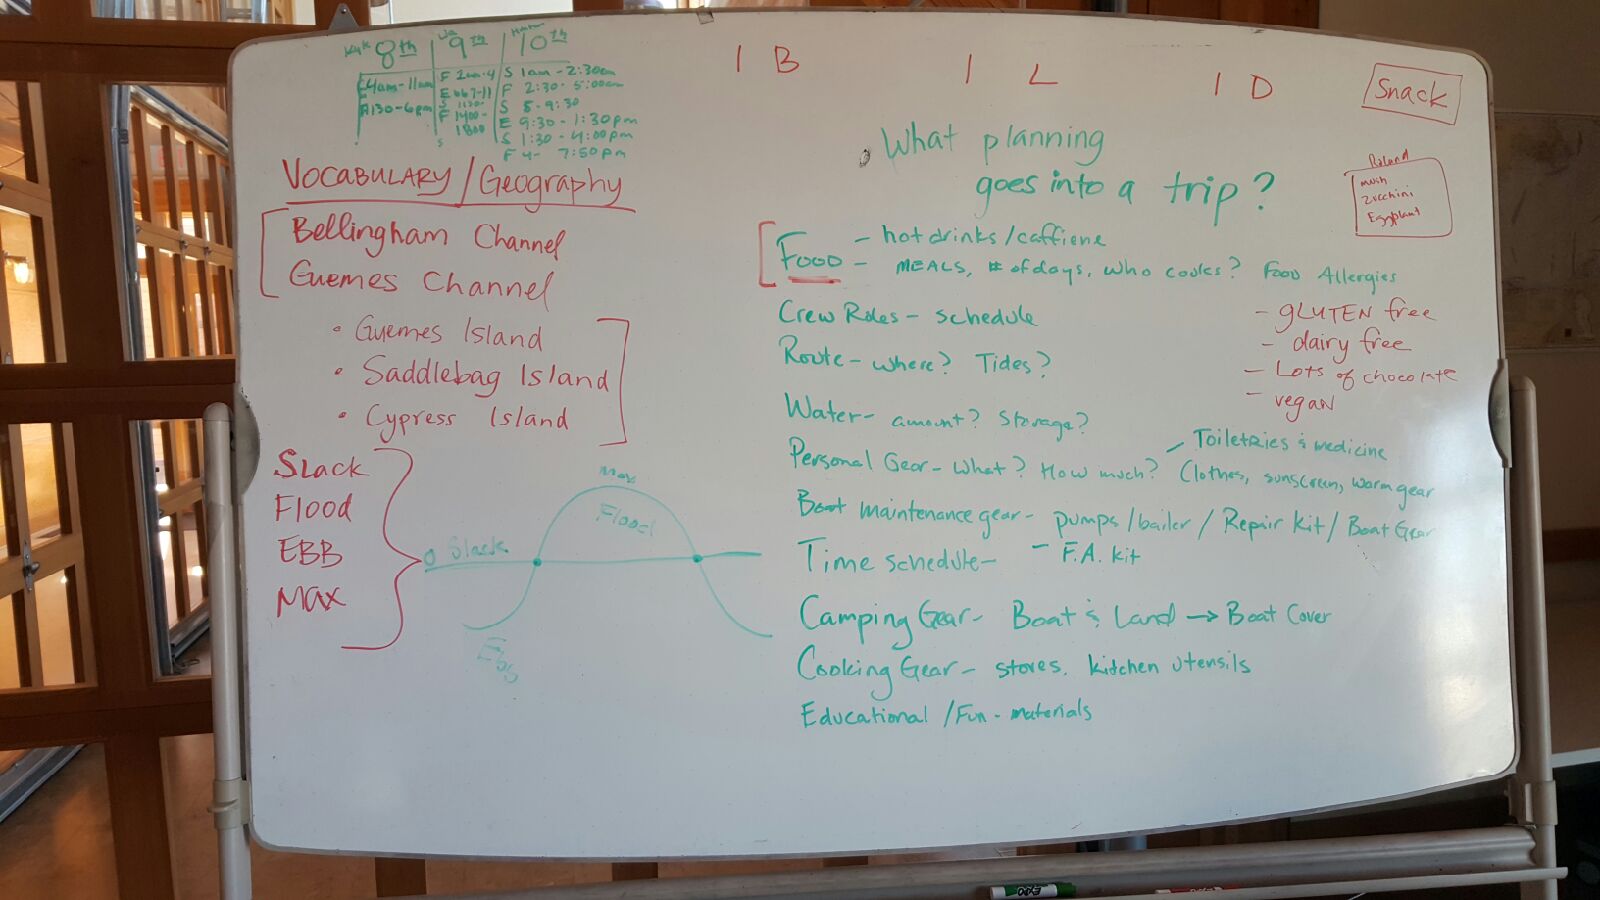 8th
9th
10th
4am-11am
1130-6pm
S 1am - 2:30am
F 2:30 - 5:00am
S 5-9:30
E 9:30 - 1:30pm
S 1:30 - 4:00pm
F 4- 7:50pm
1 B
1 L
1 D
Snack
VOCABULARY/Geography
Bellingham Channel
Guemes Channel
• Guemes Island
• Saddlebag Island
• Cypress Island
Slack
Flood
EBB
MAX
Max
Flood
0 Slack
Ebb
What planning
goes into a trip?
Roland
mush
zucchini
Eggplant
Food - hot drinks/caffiene
- MEALS, # of days, who cooks? Food Allergies
- GLUTEN free
- dairy free
- Lots of chocolate
- vegan
Crew Roles - schedule
Route - where? Tides?
Water - amount? Storage?
Personal Gear - what? How much? Clothes, sunscreen, warm gear
- Toiletries & medicine
Boat maintenance gear - pumps/bailer / Repair kit / Boat Gear
- F.A. kit
Time schedule -
Camping Gear - Boat & Land → Boat Cover
Cooking Gear - stoves, kitchen utensils
Educational /Fun - materials
EXPO